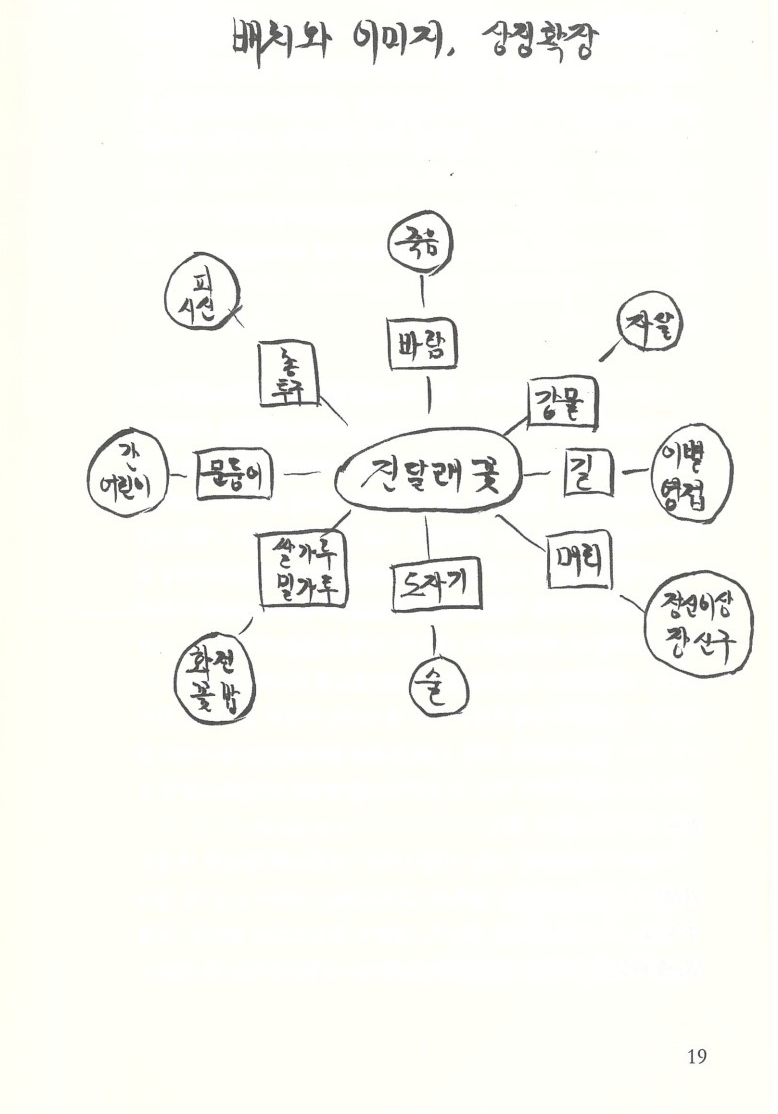 배치와 이미지, 상징확장
죽음
바람
피
시신
총
투구
자살
강물
간
어린이
문둥이
진달래 꽃
길
이별
영접
쌀가루
밀가루
도자기
머리
정신이상
장신구
화전
꽃밥
술
19